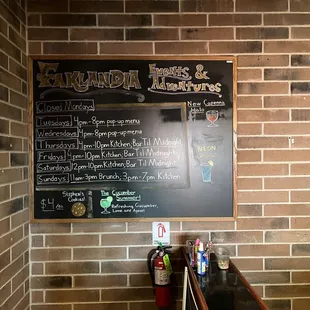 FAKLANDIA Events & Adventures
Closed Mondays
Tuesdays 4pm-8pm pop-up menu
Wednesdays 4pm-8pm pop-up menu
Thursdays 4pm-10pm Kitchen, Bar Til Midnight
Fridays 4pm-10pm Kitchen, Bar Til Midnight
Saturdays 12pm-10pm Kitchen, Bar Til Midnight
Sundays 11am-3pm Brunch, 3pm-7pm Kitchen
New
NEON
Stephen's Cookies
$4
The Cucumber Summer!
Refreshing Cucumber,
Lime and